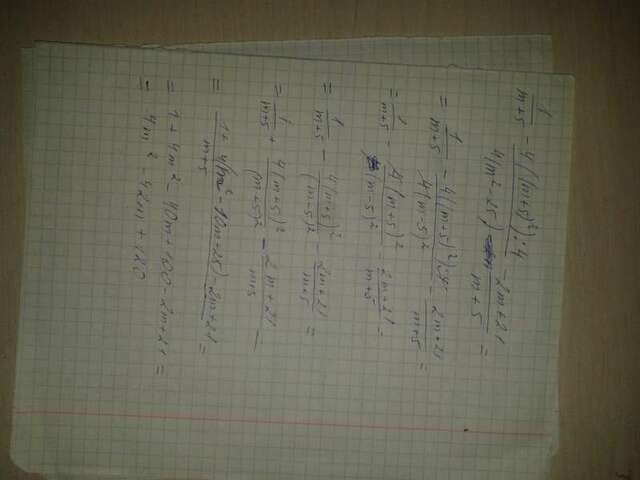 1/(m+5) - 4(m+5)²:4/(4(m²-25)) - (2m+21)/(m+5) =
= 1/(m+5) - 4(m+5)²/(4(m-5)²) - (2m+21)/(m+5) =
= 1/(m+5) - 4(m+5)²/(m-5)² - (2m+21)/(m+5) =
= 1/(m+5) - 4(m+5)²/(m-5)² - (2m+21)/(m+5) =
= 1/(m+5) + 4(m+5)²/(m+5)² - (2m+21)/(m+5) =
= (1+4(m²-10m+25)-2m+21)/(m+5) =
= 1+4m²-40m+100-2m+21=
= 4m²-42m+120